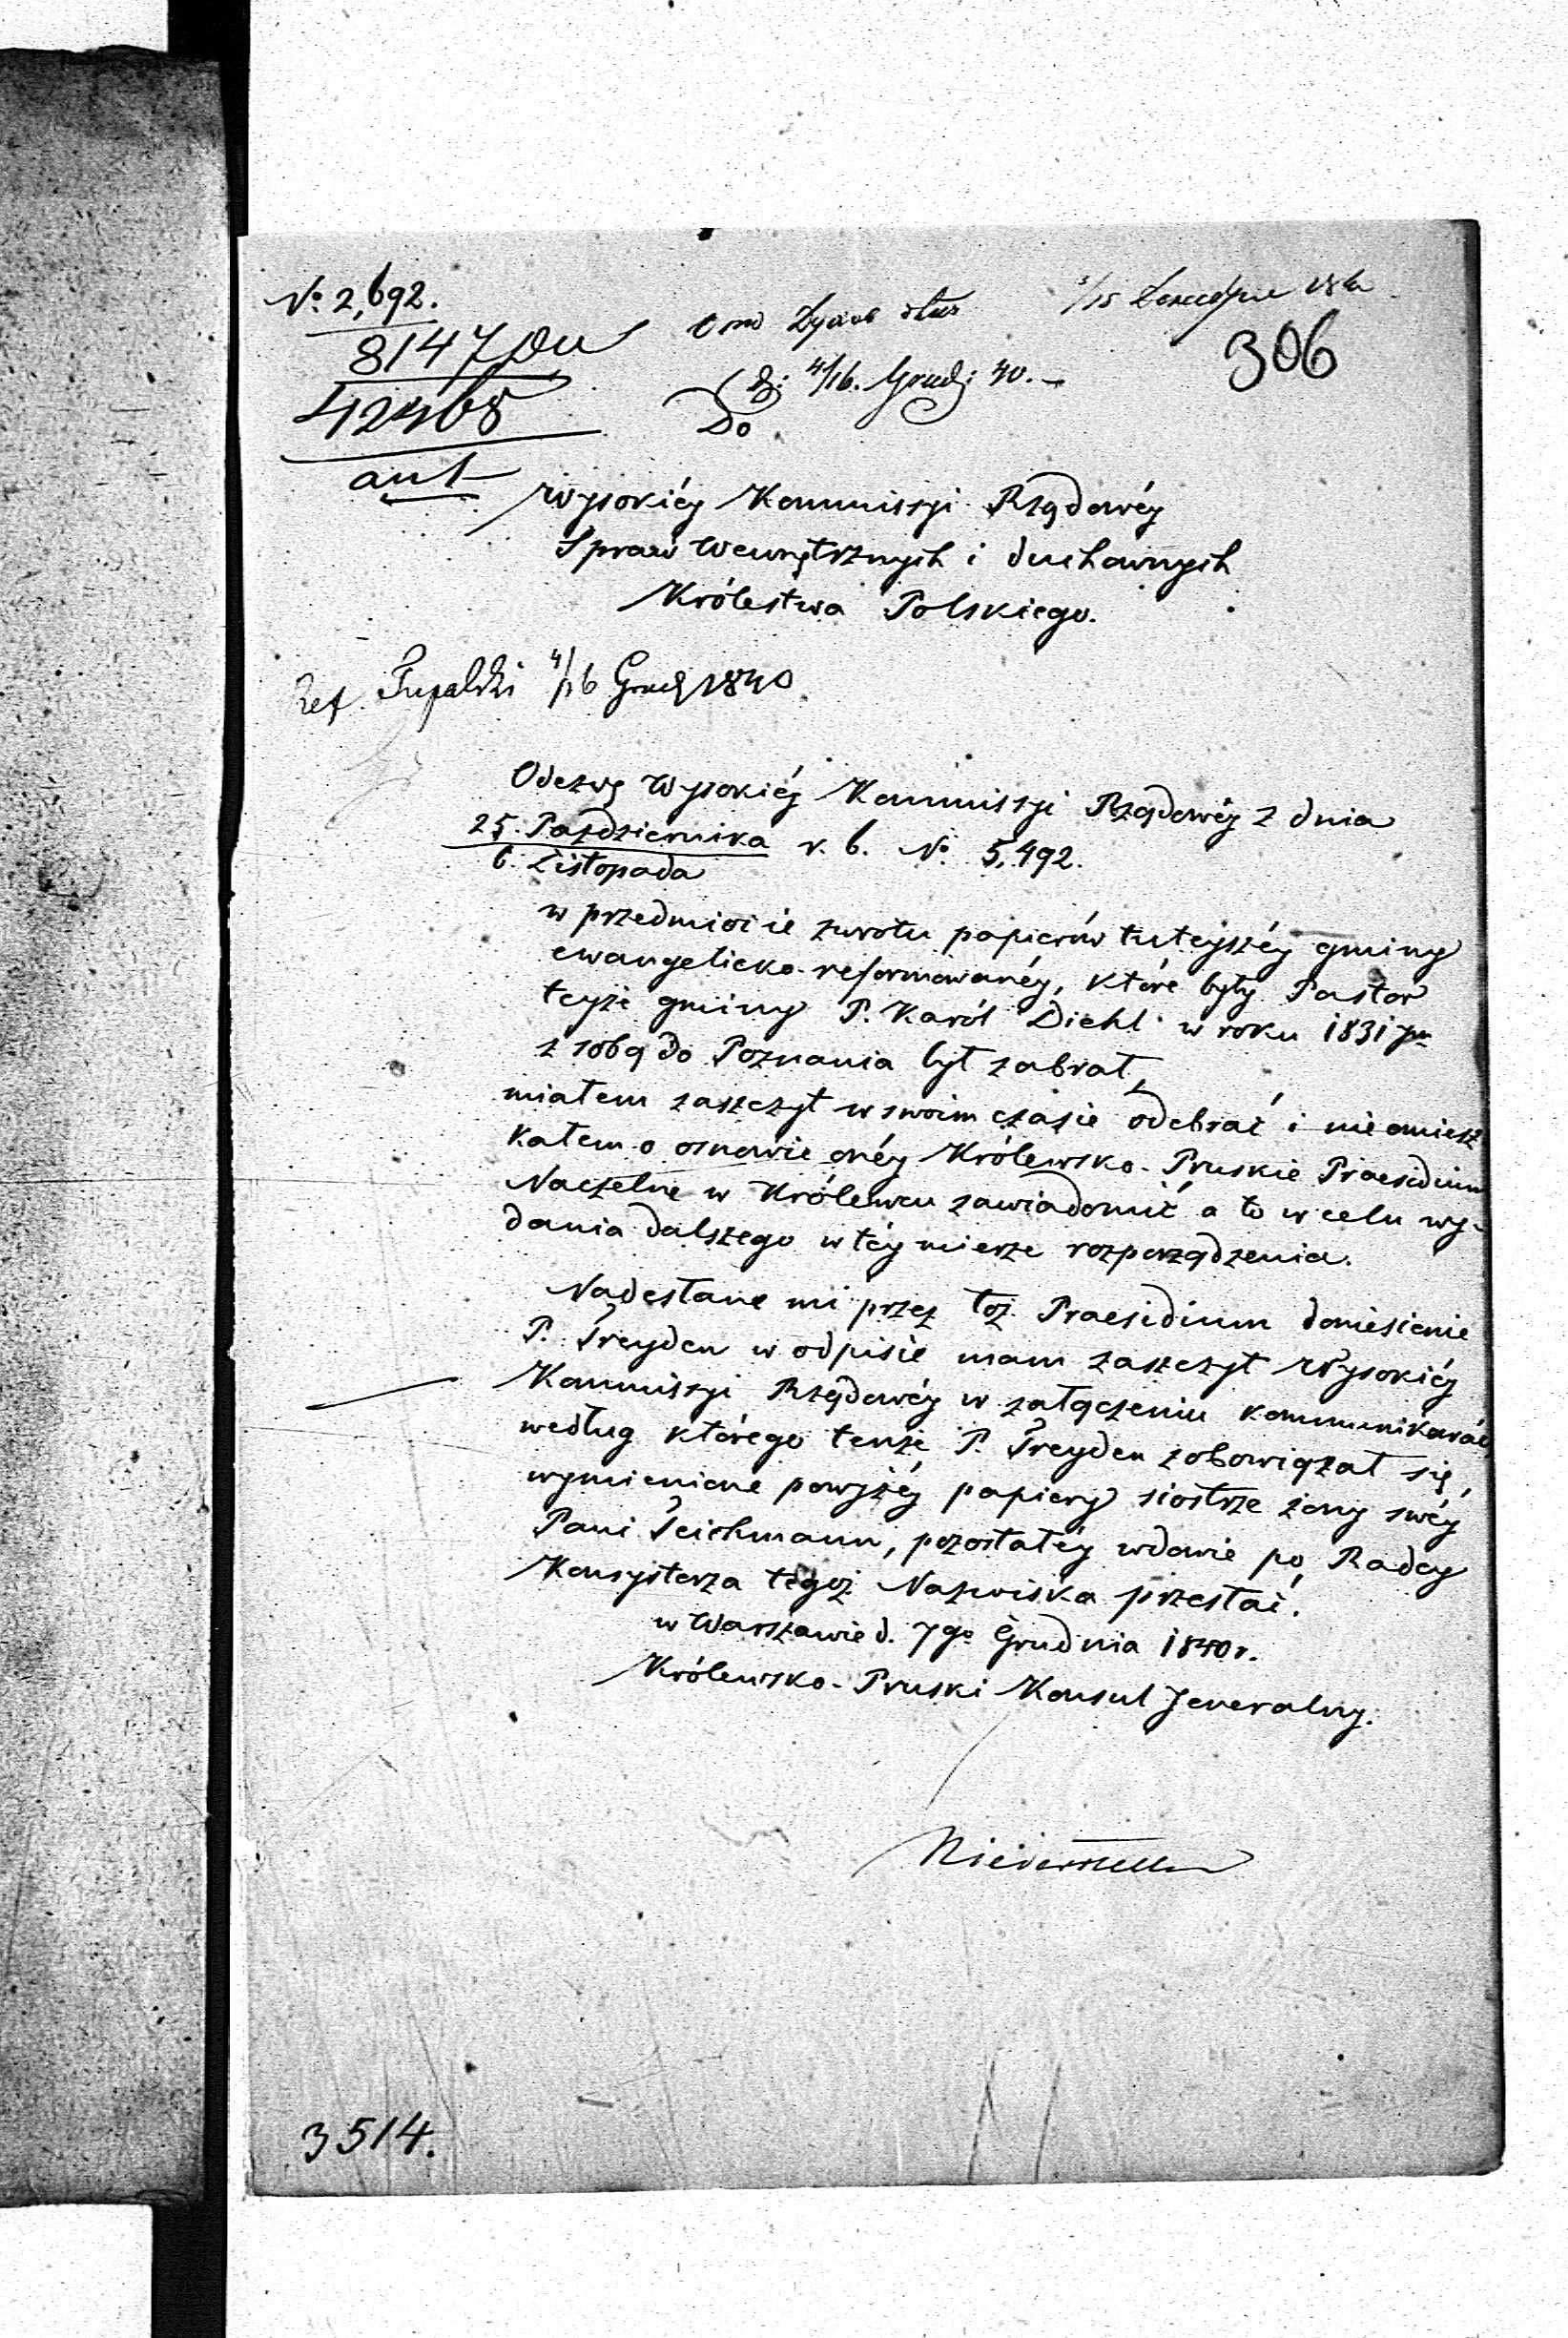 No. 2,692.
8147
42465
306
d. 4/16. Grud. 40.
Do
Wysokiéy Kommissyi Rządowéy
Spraw Wewnętrznych i duchownych
Królestwa Polskiego.
4/16 Grud 1840
Odezwę Wysokiéy Kommissyi Rządowéy z dnia
25. Października
6. Listopada
r. b. No. 5,492.
w przedmiocie zwrotu papierów tuteyszéy gminy
ewangelicko-reformowanéy, które były Pastor
teyże gminy P. Karól Diehl w roku 1831
z sobą do Poznania był zabrał,
miałem zaszczyt w swoim czasie odebrać i nieomiesz
kałem o osnowie onéy Królewsko-Pruskie Praesidium
Naczelne w Królewcu zawiadomić a to w celu wy-
dania dalszego w téy mierze rozporządzenia.
Nadesłane mi przez toż Praesidium doniesienie
P. Treyden w odpisie mam zaszczyt Wysokiéy
Kommissyi Rządowéy w załączeniu kommunikować,
według którego tenże P. Treyden zobowiązał się,
wymienione powyżéy papiery siostrze żony swéy
Pani Teichmann, pozostałéy wdowie po Radcy
Konsystorza tegoż Nazwiska przesłać.
w Warszawie d. 7go Grudnia 1840 r.
Królewsko-Pruski Konsul Jeneralny.
Niederstetter
3514.